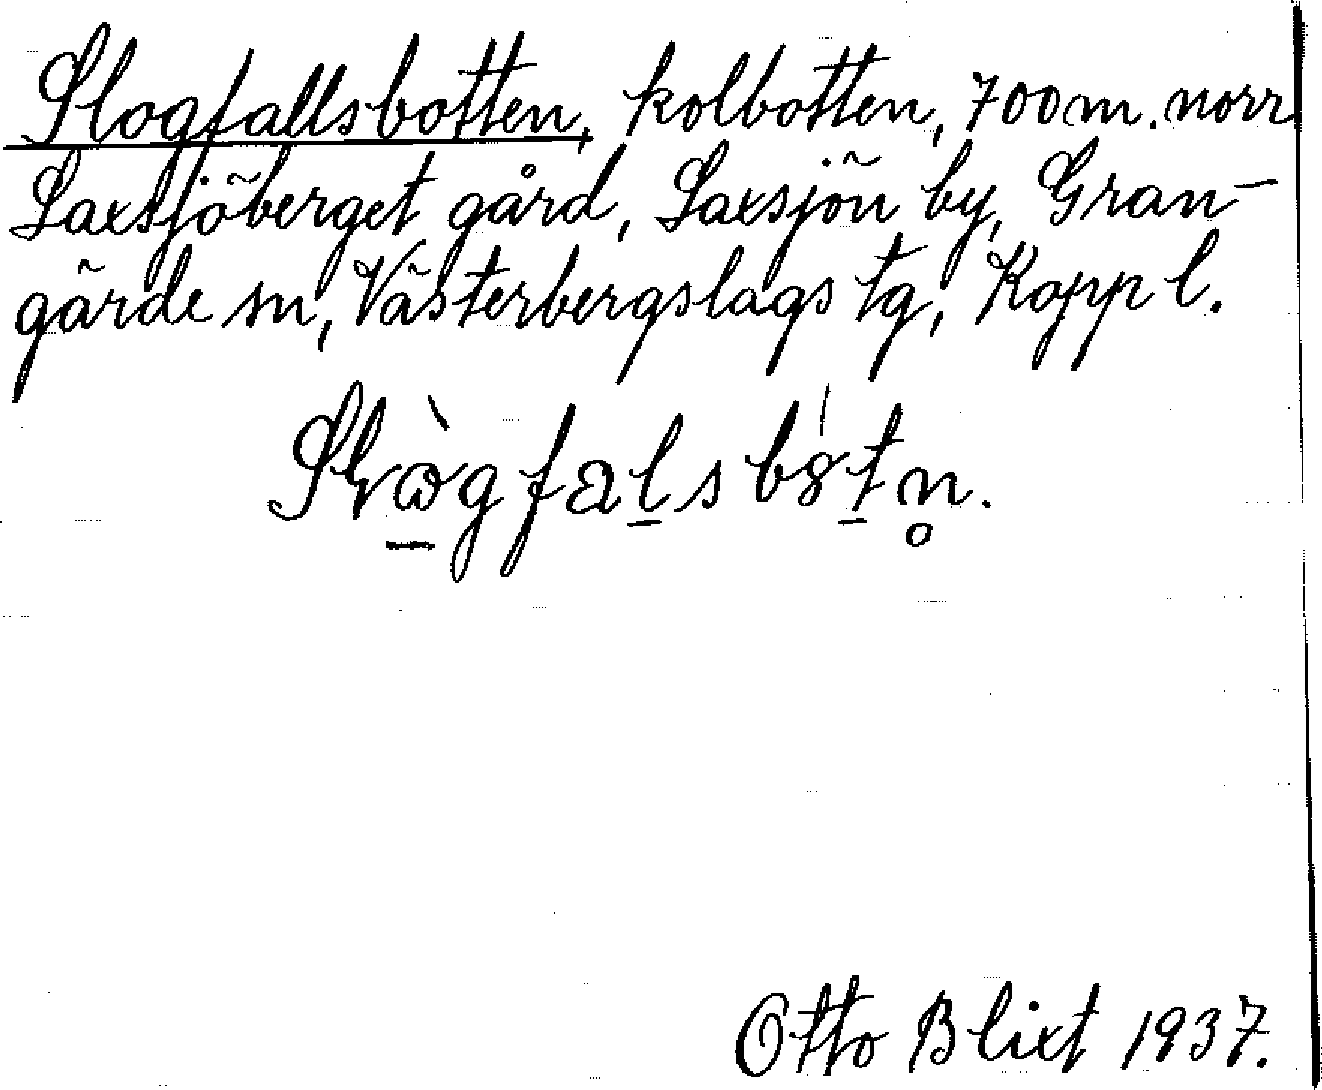 Slogfallsbotten, kolbotten, 700 m. norr
Saxsjöberget gård, Saxsjön by, Gran-
gärde sn, Västerbergslags tg, Kopp l.
Otto Blixt 1937.